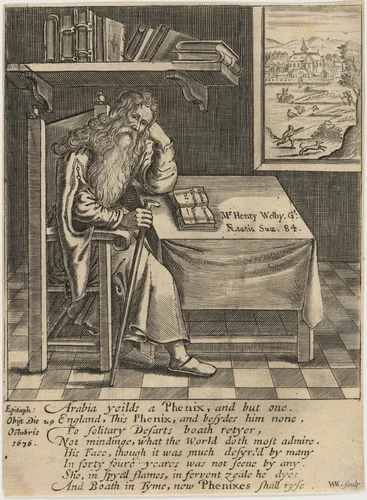 Mr. Henry Welby. Gt.
Ætatis Suæ. 84.
Epitaph:
Obijt Die 29
Octobris
1636.
Arabia yeilds a Phenix, and but one.
England, This Phenix, and besydes him none.
To solitary Desarts boath retyer,
Not mindinge, what the World doth most admire.
His Face, though it was much desyr'd by many
In forty foure yeares was not seene by any.
She, in spyced flames, in fervent zeale he dyes
And Boath in Tyme, new Phenixes shall ryse
WM. sculp